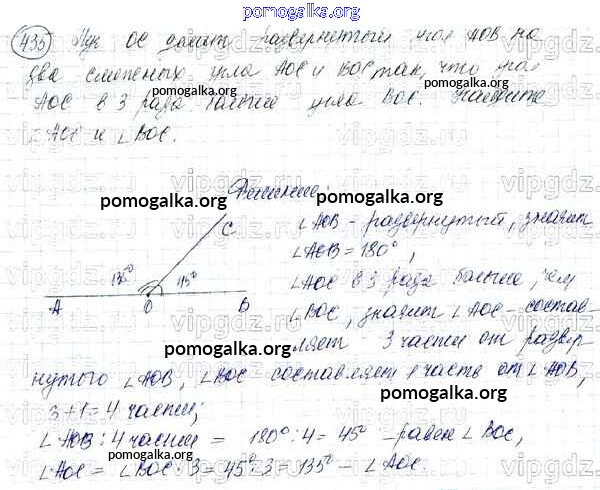 pomogalka.org
435 Луч ОС делит развернутый угол АОВ на
два смежных угла АОС и ВОС так, что угол
pomogalka.org
АОС в 3 раза больше угла ВОС. Найдите
∠АОС и ∠ВОС.
pomogalka.org
Решение:
pomogalka.org
С
∠АОВ - развернутый, значит
∠АОВ = 180°,
135° 45°
А О В
∠АОС в 3 раза больше, чем
pomogalka.org
∠ВОС, значит ∠АОС - состав-
ляет 3 части от развер-
pomogalka.org
нутого ∠АОВ, ∠ВОС составляет 1 часть от ∠АОВ,
pomogalka.org
3+1=4 части;
∠АОВ : 4 части = 180° : 4 = 45° - равен ∠ВОС,
∠АОС = ∠ВОС · 3 = 45° · 3 = 135° - ∠АОС.
pomogalka.org